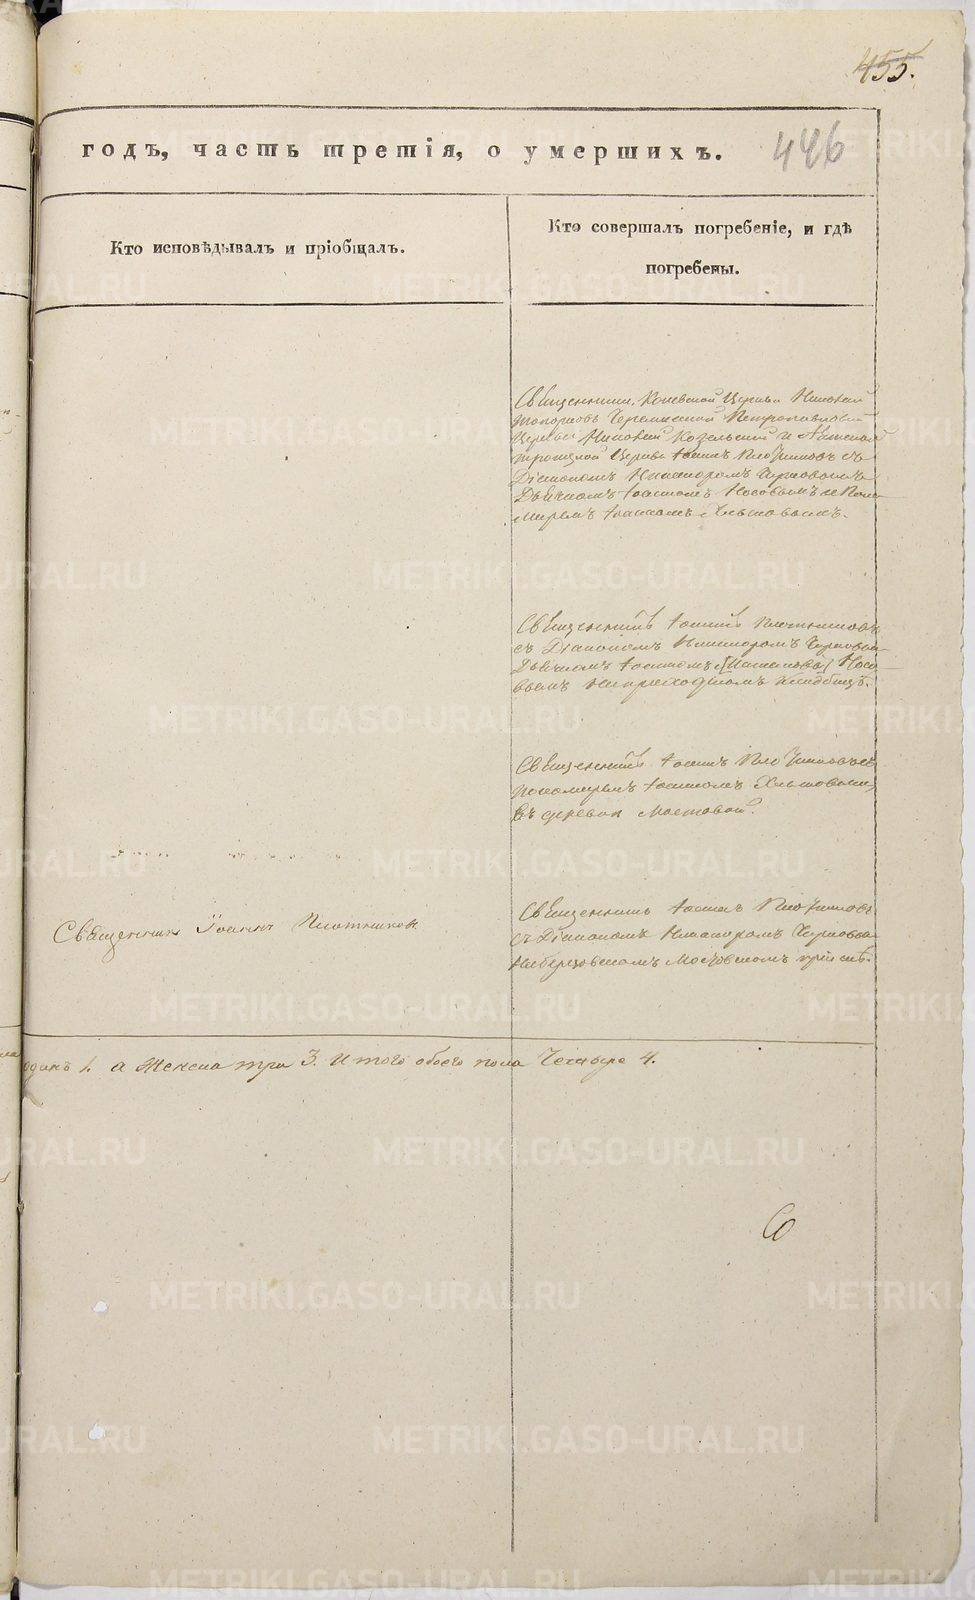 455.
446
годъ, часть третія, о умершихъ.
Кто исповѣдывалъ и пріобщалъ.
Кто совершалъ погребеніе, и гдѣ
погребены.
Священники, Коневской Церкви Николай
Топорковъ Черемисской Петропавловской
Церкви Николай Козельской и Аятской
Троицкой Церкви Іоаннъ Плотниковъ съ
Діакономъ Никаноромъ
Дьячкомъ Іоанномъ Носовымъ и Поно-
маремъ Іоанномъ Хлыновымъ.
Священникъ Іоаннъ Плотниковъ
съ Діакономъ Никаноромъ
Дьячкомъ Іоанномъ Носо-
вымъ На приходскомъ Кладбищѣ.
Священникъ Іоаннъ Плотниковъ съ
пономаремъ Іоанномъ Хлыновымъ,
Въ деревнѣ Мостовой.
Священникъ Іоаннъ Плотниковъ
Священникъ Іоаннъ Плотниковъ
съ Діакономъ Никаноромъ
На Березовскомъ Мостовскомъ пріискѣ.
одинъ 1. а Женска три 3. Итого обоего пола Четыре 4.
METRIKI.GASO-URAL.RU